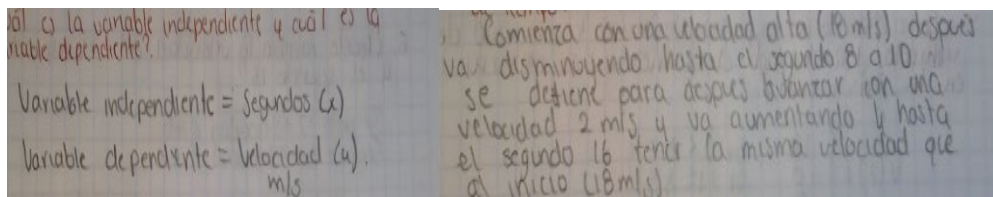 ál es la variable independiente y cuál es la
riable dependiente?
Variable independiente = segundos (x)
Variable dependiente = Velocidad (y).
m/s
Comienza con una velocidad alta (18 m/s) despues
va disminuyendo hasta el segundo 8 a 10
se detiene para despues avanzar con una
velocidad 2 m/s y va aumentando y hasta
el segundo 16 tener la misma velocidad que
al inicio (18 m/s)